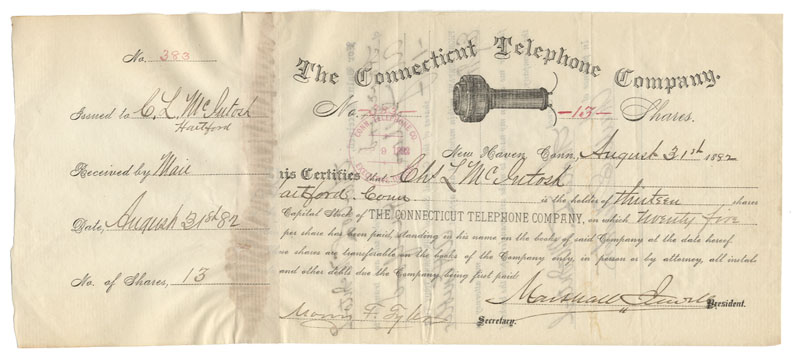 No. 383
Issued to C. L. McIntosh
Hartford
Received by Mail
Date, August 31st 82
No. of Shares, 13
The Connecticut Telephone Company.
No. —13— Shares.
New Haven Conn, August 31st 1882
is Certifies that Chs L McIntosh
artford. Conn is the holder of thirteen shares
Capital Stock of THE CONNECTICUT TELEPHONE COMPANY, on which twenty five
per share has been paid, standing in his name on the books of said Company at the date hereof
shares are transferable on the books of the Company only, in person or by attorney, all instal
and other debts due the Company being first paid.
Marshall Jewell President.
Morris F. Tyler Secretary.